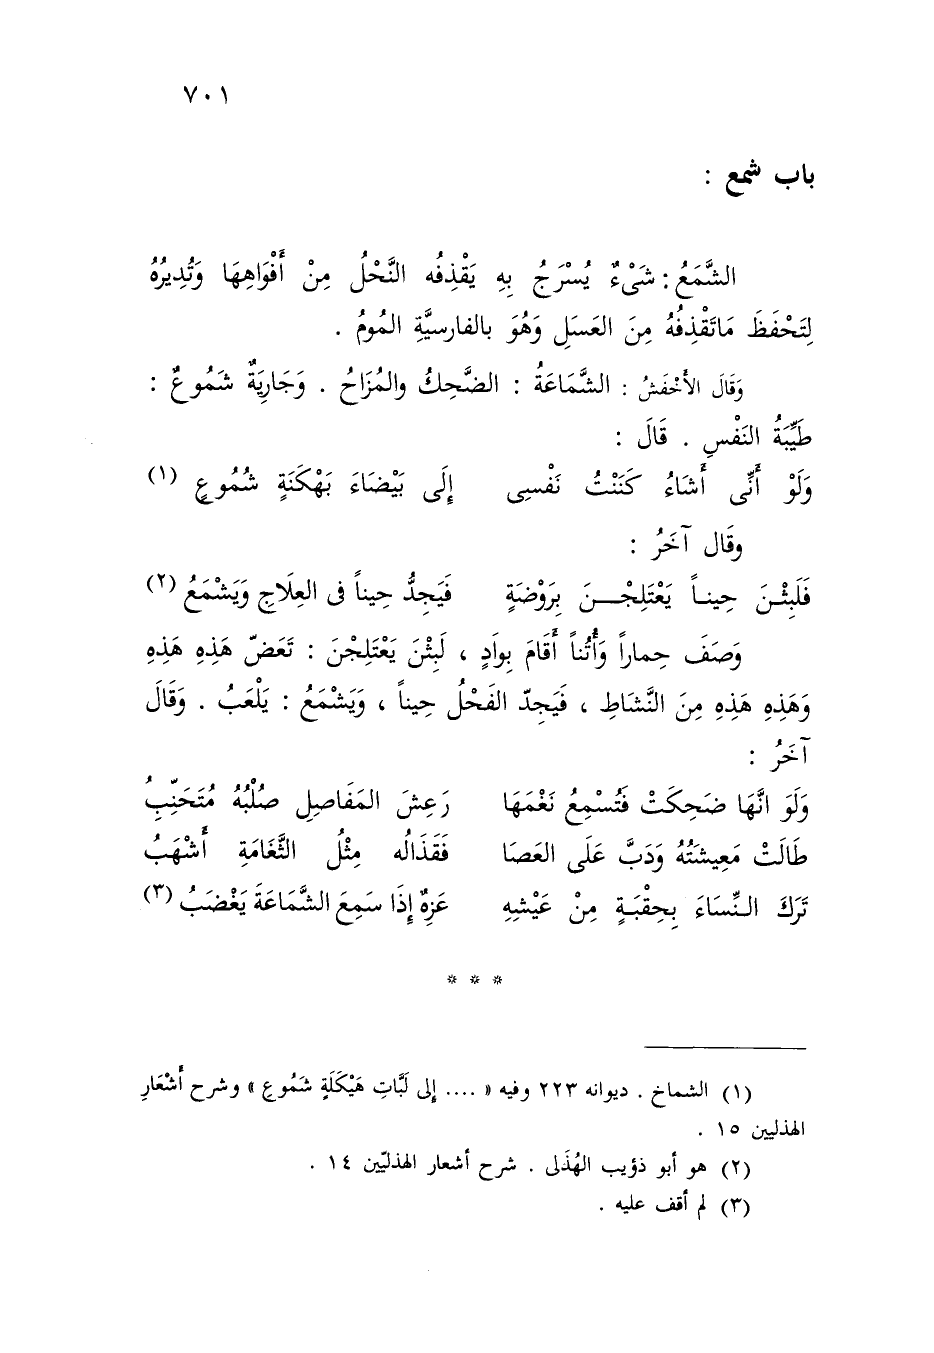 ٧٠١
باب شمع :
الشَّمَعُ : شَىْءٌ يُسْرَجُ بِهِ يَقْذِفُه النَّحْلُ مِنْ أَفْوَاهِهَا وَتُدِيرُهُ
لِتَحْفَظَ مَاتَقْذِفُهُ مِنَ العَسَلِ وَهُوَ بالفارسيَّةِ المُومُ .
وَقَالَ الأَخْفَشُ : الشَّمَاعَةُ : الضَّحِكُ والمُزَاحُ . وَجَارِيَةٌ شَمُوعٌ :
طَيِّبَةُ النَفْسِ . قَالَ :
وَلَوْ أَنِّى أَشَاءُ كَنَنْتُ نَفْسِى إِلَى بَيْضَاءَ بَهْكَنَةٍ شَمُوعٍ (١)
وقَال آخَرُ :
فَلَبِثْنَ حِيناً يَعْتَلِجْنَ بِرَوْضَةٍ فَيَجِدُّ حِيناً فى العِلَاجِ وَيَشْمَعُ (٢)
وَصَفَ حِماراً وَأُتُناً أَقَامَ بوادٍ ، لَبِثْنَ يَعْتَلِجْنَ : تَعَضّ هَذِهِ هَذِهِ
وَهَذِهِ هَذِهِ مِنَ النَّشَاطِ ، فَيَجِدّ الفَحْلُ حِيناً ، وَيَشْمَعُ : يَلْعَبُ . وَقَالَ
آخَرُ :
وَلَوَ انَّهَا ضَحِكَتْ فَتُسْمِعُ نَغْمَهَا رَعِشَ المَفَاصِلِ صُلْبُهُ مُتَحَنِّبُ
طَالَتْ مَعِيشَتُهُ وَدَبَّ عَلَى العَصَا فَقَذَالُه مِثْلُ الثَّغَامَةِ أَشْهَبُ
تَرَكَ النِّسَاءَ بِحِقْبَةٍ مِنْ عَيْشِهِ عَزِهٌ إِذَا سَمِعَ الشَّمَاعَةَ يَغْضَبُ (٣)
* * *
(١) الشماخ . ديوانه ٢٢٣ وفيه « .... إِلى لَبَّاتِ هَيْكَلَةٍ شَمُوعِ » وشرح أَشْعَارِ
الهذليين ١٥ .
(٢) هو أبو ذؤيب الهُذَلى . شرح أشعار الهذليّين ١٤ .
(٣) لم أقف عليه .